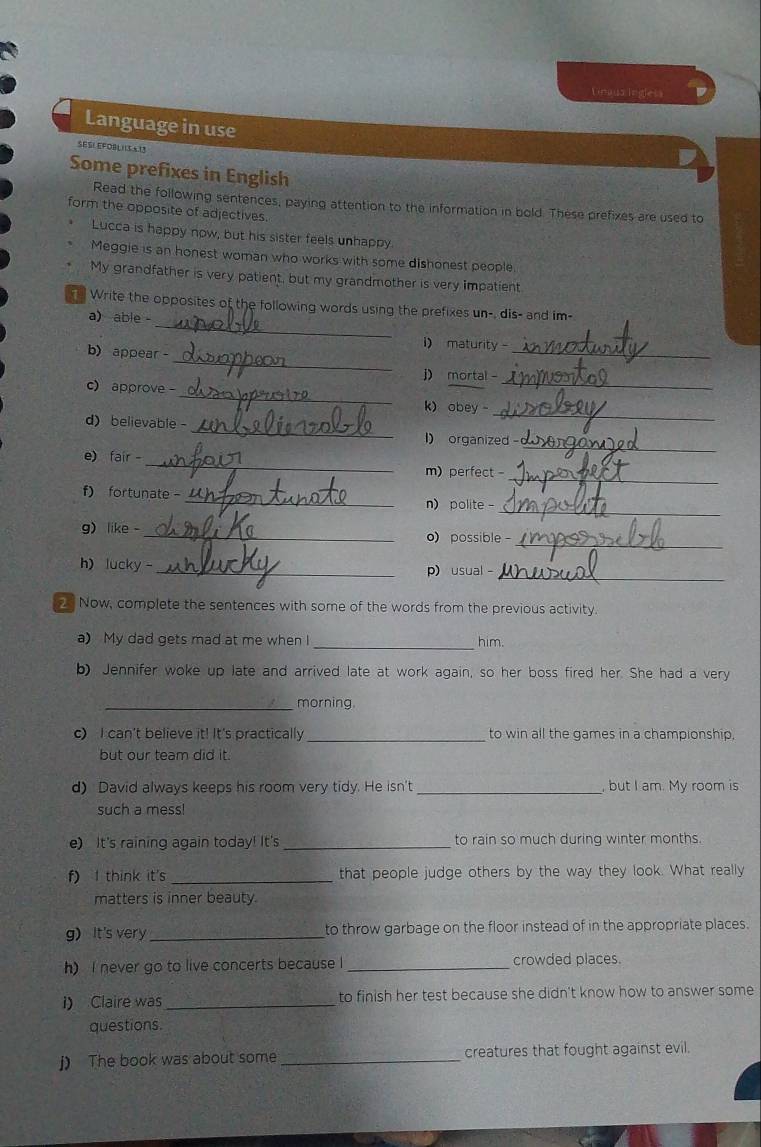 Língua Inglesa
Language in use
Some prefixes in English
Read the following sentences, paying attention to the information in bold. These prefixes are used to
form the opposite of adjectives.
• Lucca is happy now, but his sister feels unhappy.
• Meggie is an honest woman who works with some dishonest people.
• My grandfather is very patient, but my grandmother is very impatient.
1 Write the opposites of the following words using the prefixes un-, dis- and im-
a) able - unable
b) appear - disappear
c) approve - disapprove
d) believable - unbelievable
e) fair - unfair
f) fortunate - unfortunate
g) like - dislike
h) lucky - unlucky
i) maturity - inmaturity
j) mortal - immortal
k) obey - disobey
l) organized - disorganized
m) perfect - Imperfect
n) polite - Impolite
o) possible -
p) usual - unusual
2 Now, complete the sentences with some of the words from the previous activity.
a) My dad gets mad at me when I ____ him.
b) Jennifer woke up late and arrived late at work again, so her boss fired her. She had a very
____ morning.
c) I can't believe it! It's practically ____ to win all the games in a championship,
but our team did it.
d) David always keeps his room very tidy. He isn't ____, but I am. My room is
such a mess!
e) It's raining again today! It's ____ to rain so much during winter months.
f) I think it's ____ that people judge others by the way they look. What really
matters is inner beauty.
g) It's very ____ to throw garbage on the floor instead of in the appropriate places.
h) I never go to live concerts because I ____ crowded places.
i) Claire was ____ to finish her test because she didn't know how to answer some
questions.
j) The book was about some ____ creatures that fought against evil.